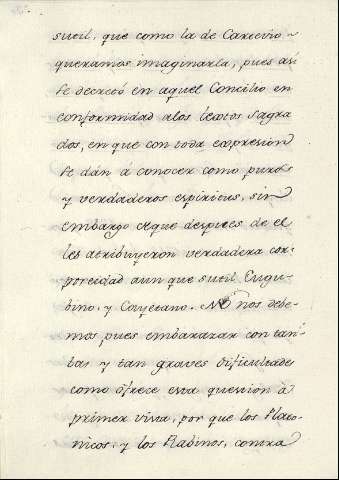 sutil, que como la de Carcivio
queramos imaginarla, pues asi
se decretó en aquel Concilio en
conformidad alos textos sagra
dos, en que con toda expresion
se dán á conocer como puros
y verdaderos espiritus, sin
embargo deque despues de el
les atribuyeron verdadera cor-
poreidad aun que sutil Eugu-
bino, y Cayetano. No nos debe-
mos pues embarazar con tan-
tas y tan graves dificultades
como ofrece esta question á
primer vista, por que los Plato-
nicos, y los Rabinos, contra